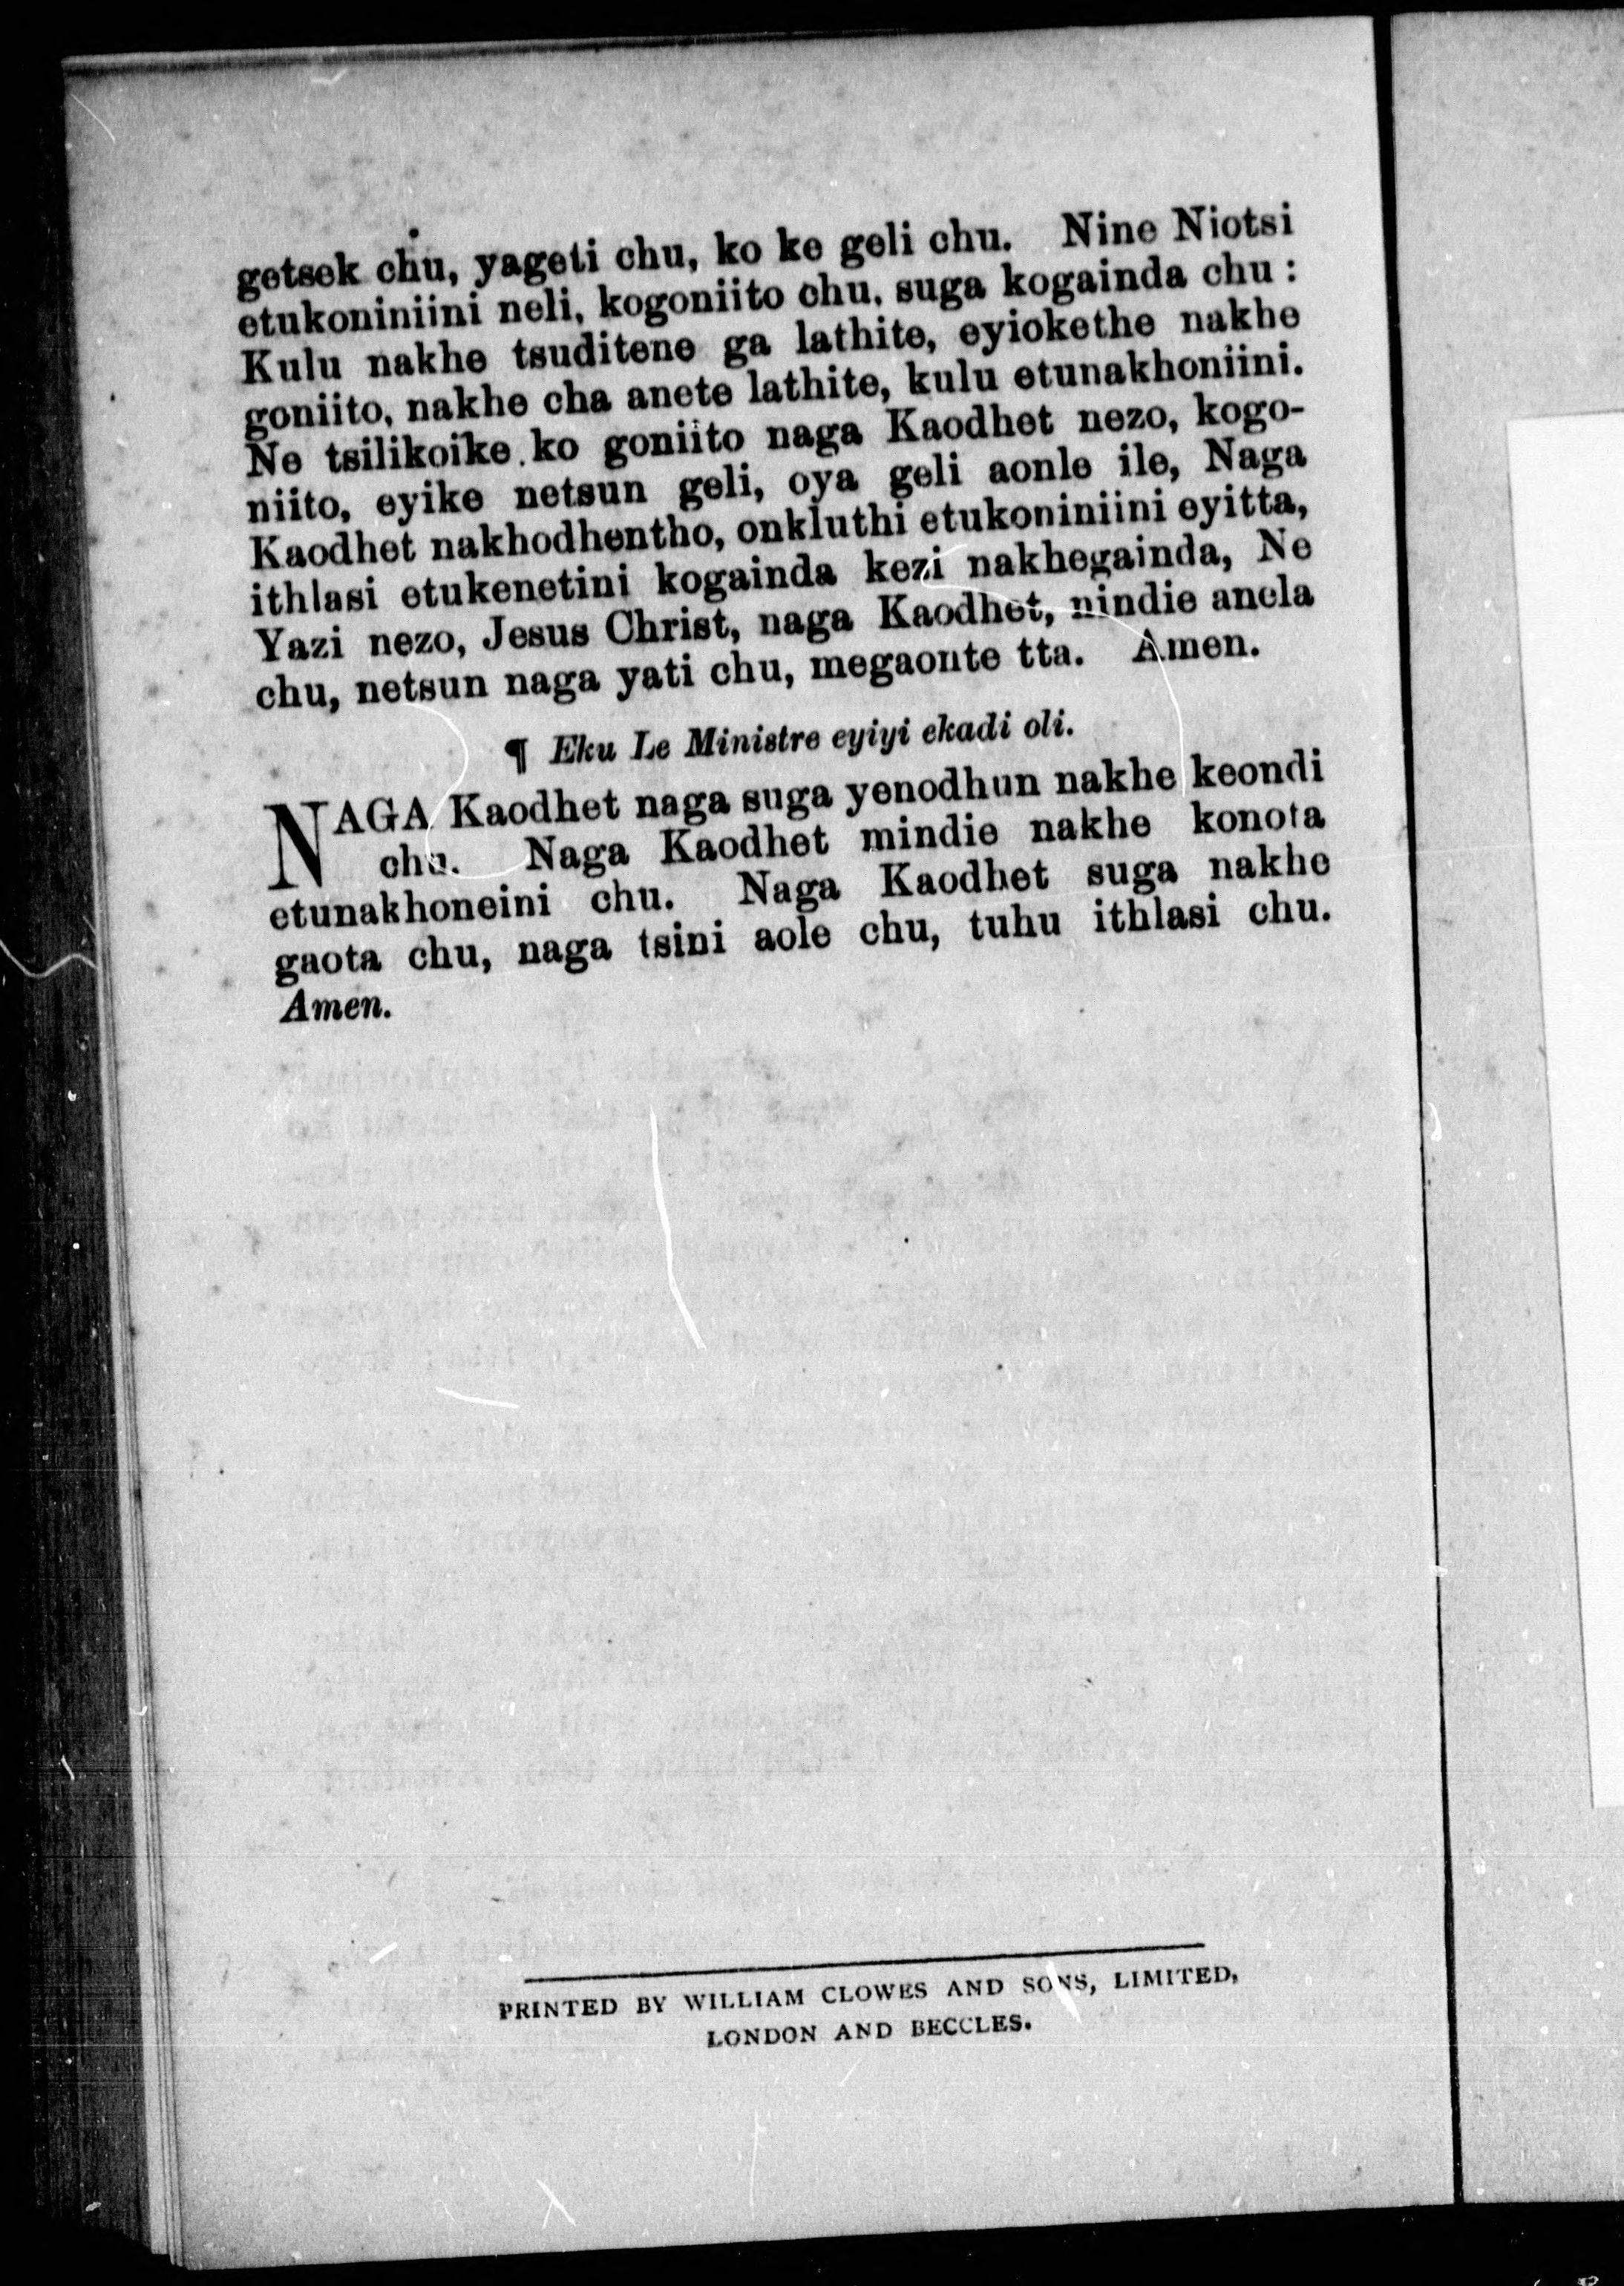 getsek chu, yageti chu, ko ke geli chu. Nine Niotsi
etukoniniini neli, kogoniito chu, suga kogainda chu :
Kulu nakhe tsuditene ga lathite, eyiokethe nakhe
goniito, nakhe cha anete lathite, kulu etunakhoniini.
Ne tsilikoike ko goniito naga Kaodhet nezo, kogo-
niito, eyike netsun geli, oya geli aonle ile, Naga
Kaodhet nakhodhentho, onkluthi etukoniniini eyitta,
ithlasi etukenetini kogainda kezi nakhegainda, Ne
Yazi nezo, Jesus Christ, naga Kaodhet, nindie anela
chu, netsun naga yati chu, megaonte tta. Amen.
¶ Eku Le Ministre eyiyi ekadi oli.
NAGA Kaodhet naga suga yenodhun nakhe keondi
chu. Naga Kaodhet mindie nakhe konota
etunakhoneini chu. Naga Kaodhet suga nakhe
gaota chu, naga tsini aole chu, tuhu ithlasi chu.
Amen.
PRINTED BY WILLIAM CLOWES AND SONS, LIMITED,
LONDON AND BECCLES.